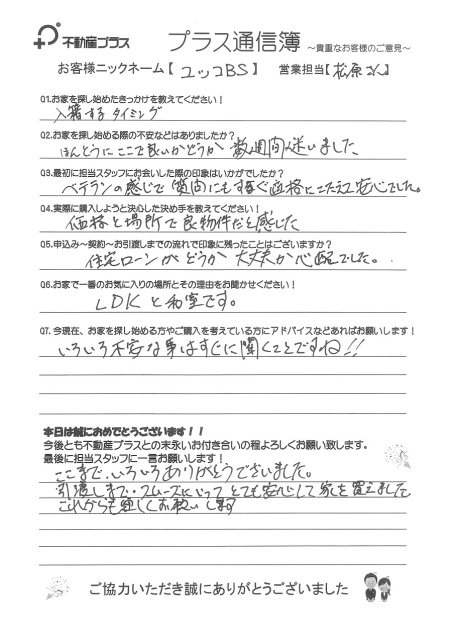 不動産プラス プラス通信簿 ~貴重なお客様のご意見~
お客様ニックネーム【 ユッコBS 】 営業担当【 松原さん 】
Q1.お家を探し始めたきっかけを教えてください!
入籍するタイミング
Q2.お家を探し始める際の不安などはありましたか?
ほんとうにここで良いかどうか 数週間迷いました
Q3.最初に担当スタッフにお会いした際の印象はいかがでしたか?
ベテランの感じで 質問にもすぐ的確にこたえて安心でした。
Q4.実際に購入しようと決心した決め手を教えてください!
価格と場所で良物件だと感じた
Q5.申込み~契約~お引渡しまでの流れで印象に残ったことはございますか?
住宅ローンがどうか 大丈夫か心配でした。
Q6.お家で一番のお気に入りの場所とその理由をお聞かせください!
LDKと和室です。
Q7.今現在、お家を探し始める方やご購入を考えている方にアドバイスなどあればお願いします!
いろいろ不安な事はすぐに聞くことですね!!
本日は誠におめでとうございます!!
今後とも不動産プラスとの末永いお付き合いの程よろしくお願い致します。
最後に担当スタッフに一言お願いします!
ここまで、いろいろありがとうございました。
引渡しまで、スムーズにいって とても安心して家を買えました
これからも宜しくお願いします
ご協力いただき誠にありがとうございました